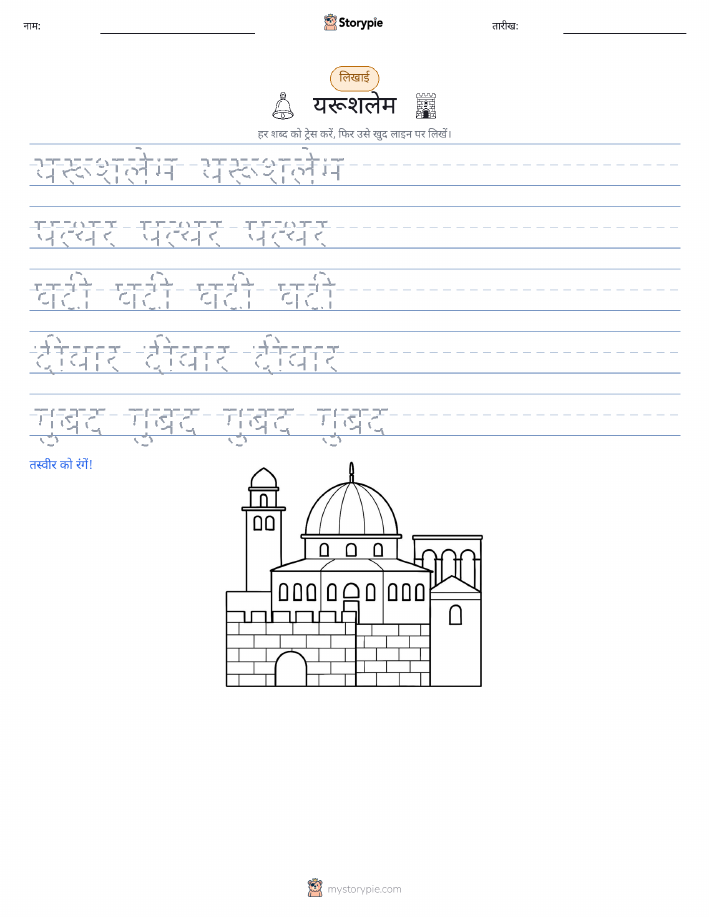 नाम:
Storypie
तारीख:
लिखाई
यरूशलेम
हर शब्द को ट्रेस करें, फिर उसे खुद लाइन पर लिखें।
यरूशलेम यरूशलेम
पत्थर पत्थर पत्थर
घटी घटी घटी घटी
दीवार दीवार दीवार
गुबद गुबद गुबद गुबद
तस्वीर को रंगें!
mystorypie.com